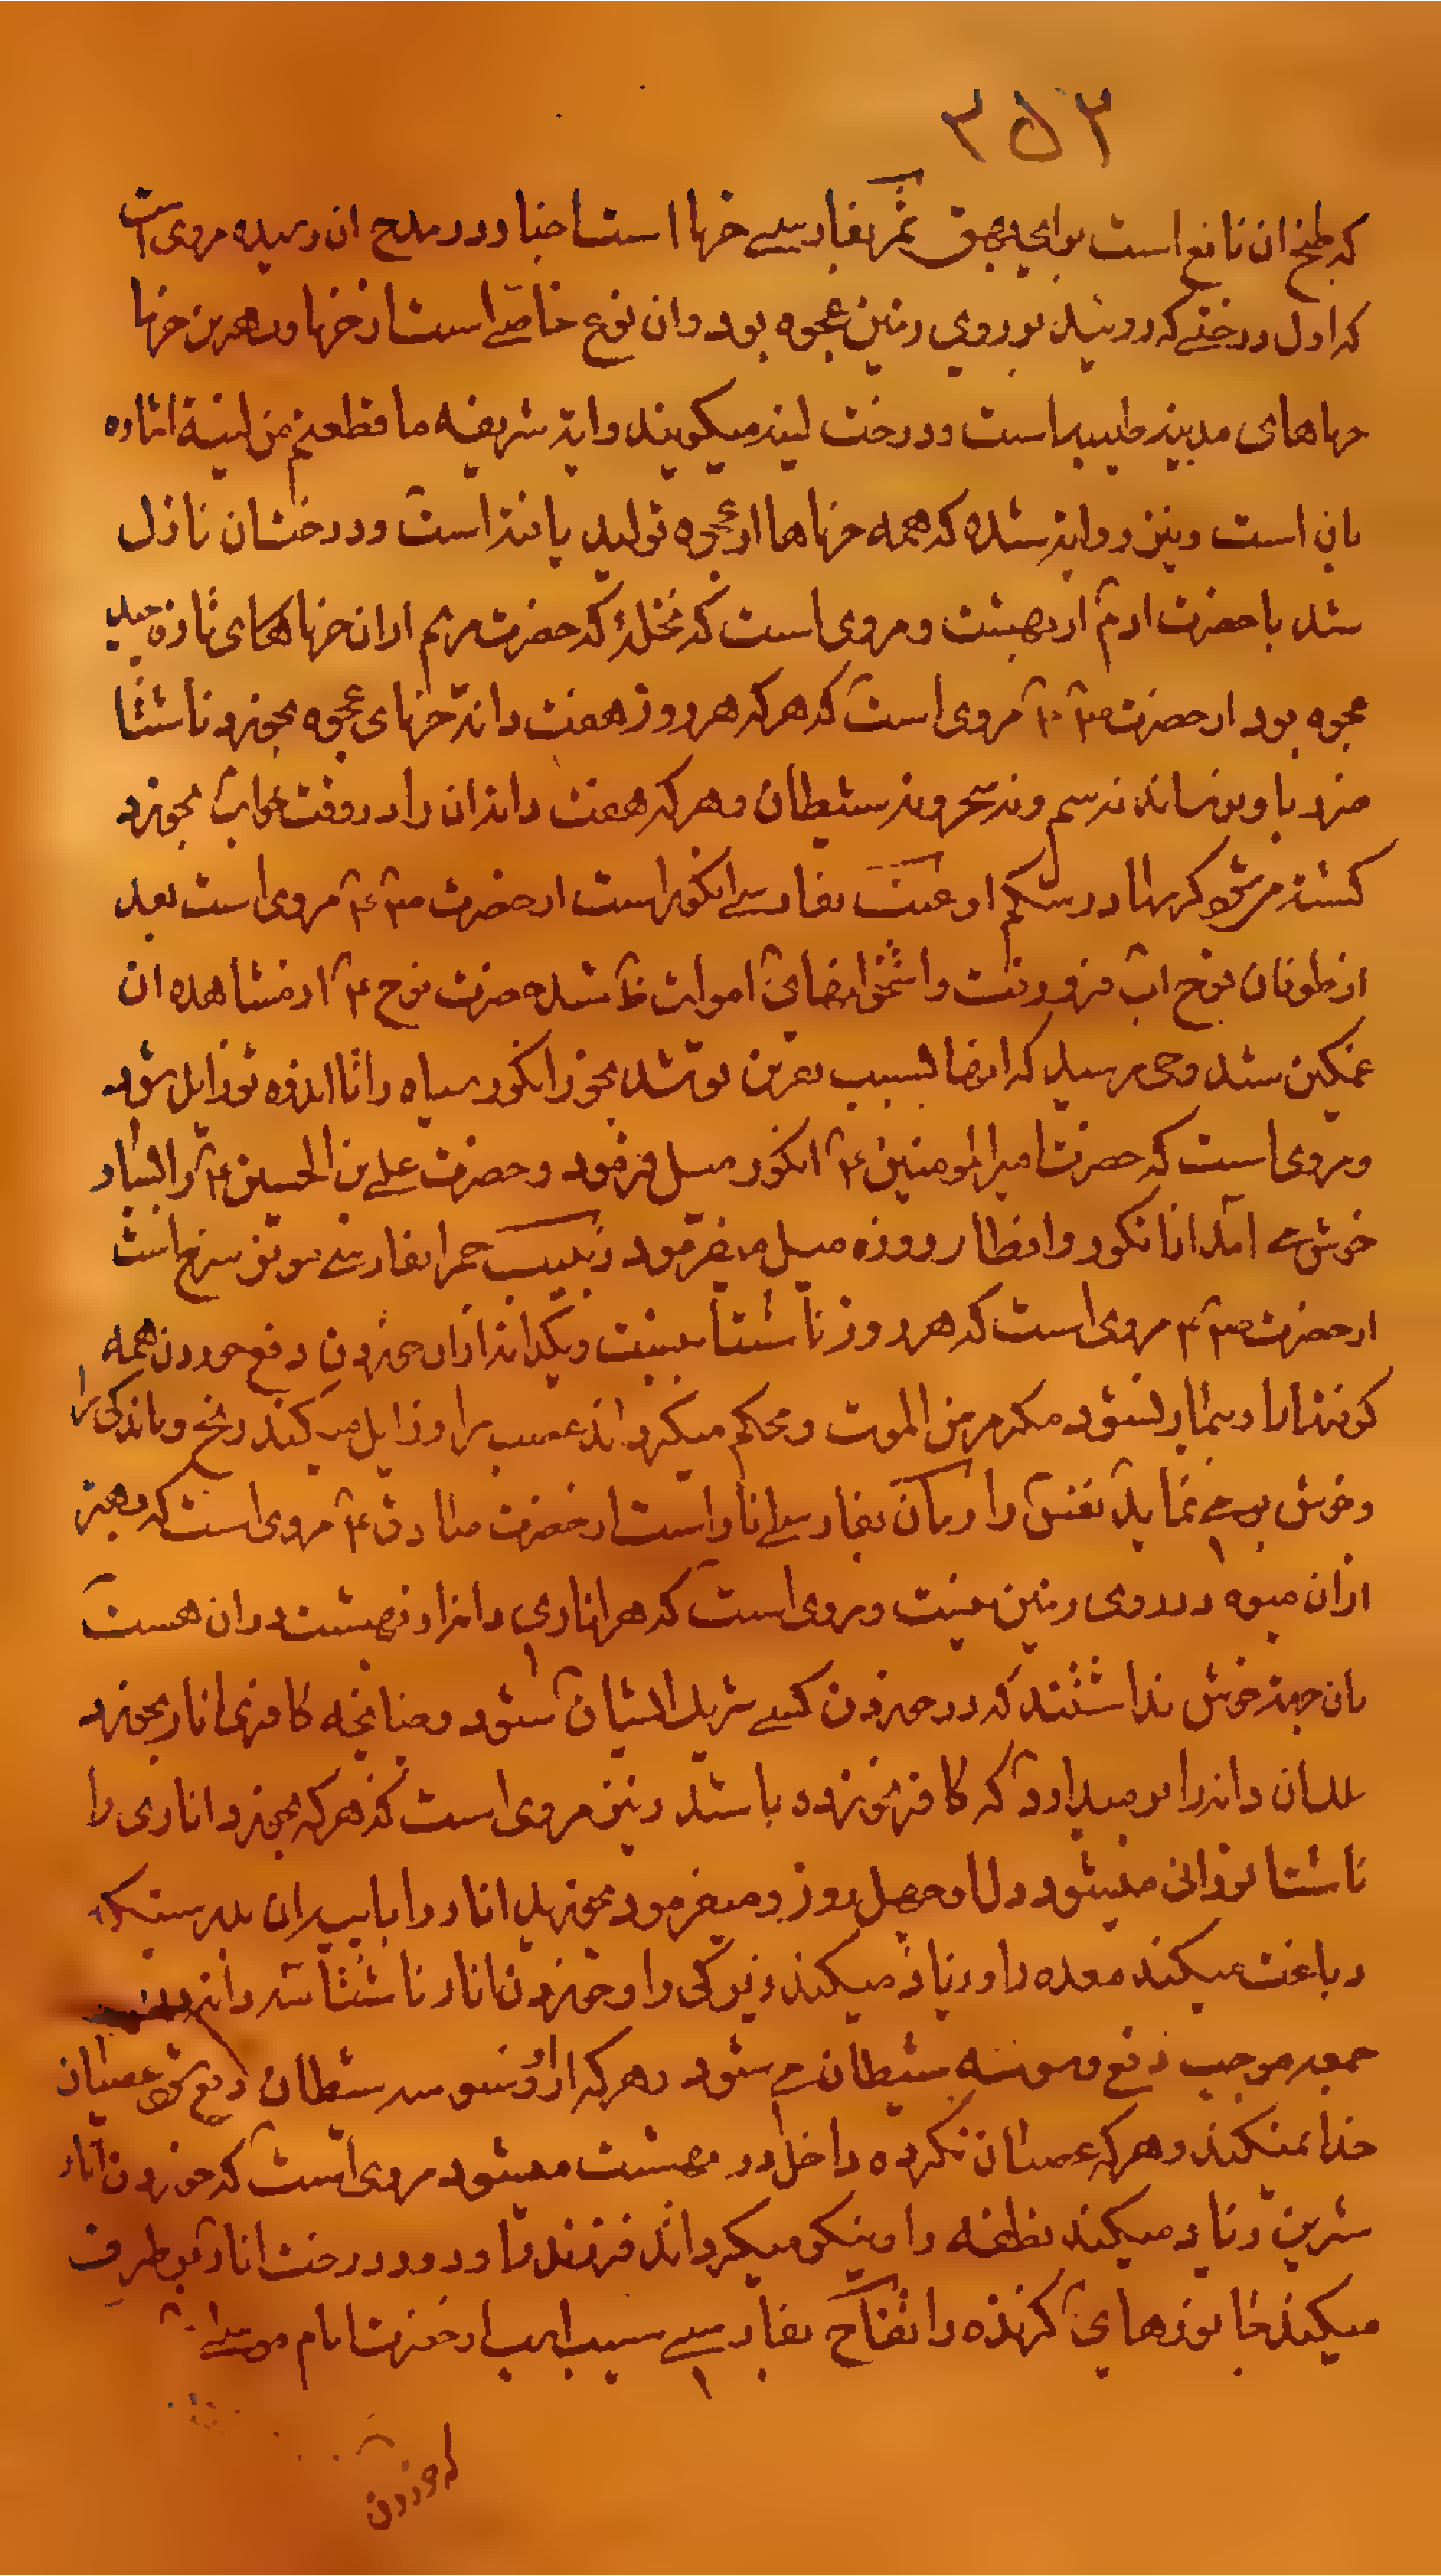 ۳۵۲
که طبخ ان نافع است برای بهق تمر بفارسے خرما است اخبار در مدح ان رسیده مروی است
که اول درختے که روئید بر روی زمین عجوه بود وان نوع خاصے است از خرما وبهرین خرما
خرماهای مدینه طیبه است ودرخت لینه میکویند وایه شریفه ما قطعتم من لینة اشاره
بان است ونیز روایة شده که همه خرماها از عجوه تولید یافته است ودرختان نازل
شد با حضرت ادم از بهشت ومروی است که نخله که حضرت مریم ازان خرماهای تازه چید
عجوه بود از حضرت مروی است که هرکه هر روز هفت دانه خرمای عجوه بخورد ناشتا
ضرر باو نرساند نه سم ونه سحر ونه شیطان وهرکه هفت دانه ان را در وقت خواب بخورد
کشته مرشود کرمها در شکم او عنب بفارسے انکور است از حضرت ص مروی است بعد
از طوفان نوح اب فرو رفت واستخوانهای اموات ظ شد حضرت نوح ع از مشاهده ان
غمکین شد وحی رسید که اینها بسبب نفرین تو شد بخور انکور سیاه را تا اندوه تو زایل شود
ومروی است که حضرت امیر المومنین ع انکور میل فرمود وحضرت علی بن الحسین ع را بسیار
خوش مے امد از انکور وافطار روزه میل میفرمود زبیب حمرا بفارسے مویز سرخ است
از حضرت مروی است که هر روز ناشتا بیست ویکدانه ازان خوردن دفع خوردن همه
کوفتها بیمار نشود مکر مرض الموت ومحکم میکرداند عصب را وزایل میکند رنج وماندکی را
وخوش بو مے نماید نفس را رمان بفارسے انار است از حضرت صادق ع مروی است که بهتر
ازان میوه در روی زمین نیست ومروی است که هر اناری دانه از بهشت دران هست
بان جهة خوش نداشتند که در خوردن کسے شریک ایشان شود وچنانچه کافری انار بخورد
ملک ان دانه را بر میدارد که کافر نخورده باشد ونیز مروی است که هرکه بخورد اناری را
ناشتا نورانی میشود دل او چهل روز ومیفرمود بخورید انار را با پیه ان بدرستیکه
دباغت میکند معده را وزیاد میکند زیرکی را وخوردن انار ناشتا در روز
جمعه موجب دفع وسوسه شیطان مے شود وهرکه ازو وسوسه شیطان دفع شود عصیان
خدا نمیکند وهرکه عصیان نکرده داخل در بهشت میشود مروی است که خوردن انار
شرین زیاد میکند نطفه را ونیکو میکرداند فرزند را ودود درخت انار بر طرف
میکند جانورهای کزنده را تفاح بفارسے سیب است از حضرت امام موسے